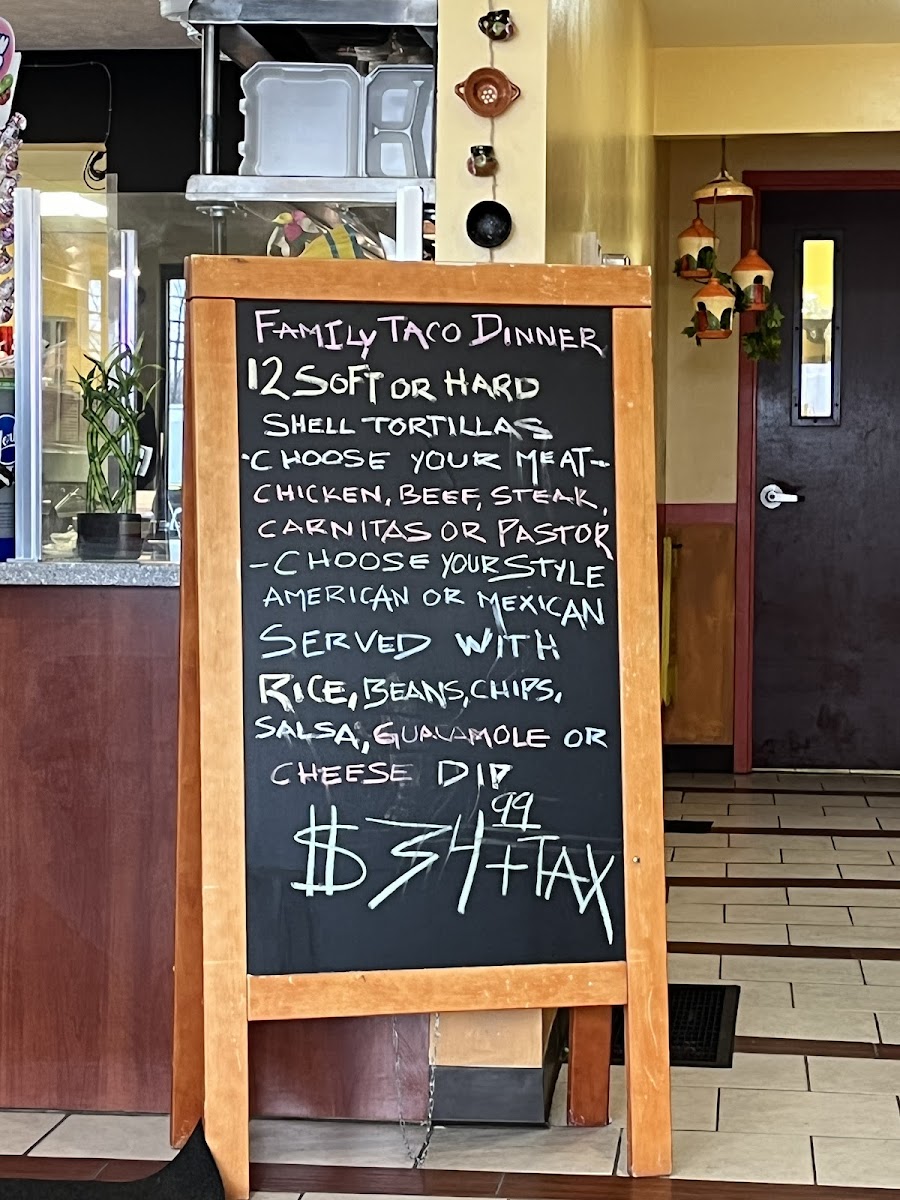 FAMILY TACO DINNER
12 SOFT OR HARD
SHELL TORTILLAS
·CHOOSE YOUR MEAT-
CHICKEN, BEEF, STEAK,
CARNITAS OR PASTOR
-CHOOSE YOUR STYLE
AMERICAN OR MEXICAN
SERVED WITH
RICE, BEANS, CHIPS,
SALSA, GUACAMOLE OR
CHEESE DIP
$34.99 +TAX